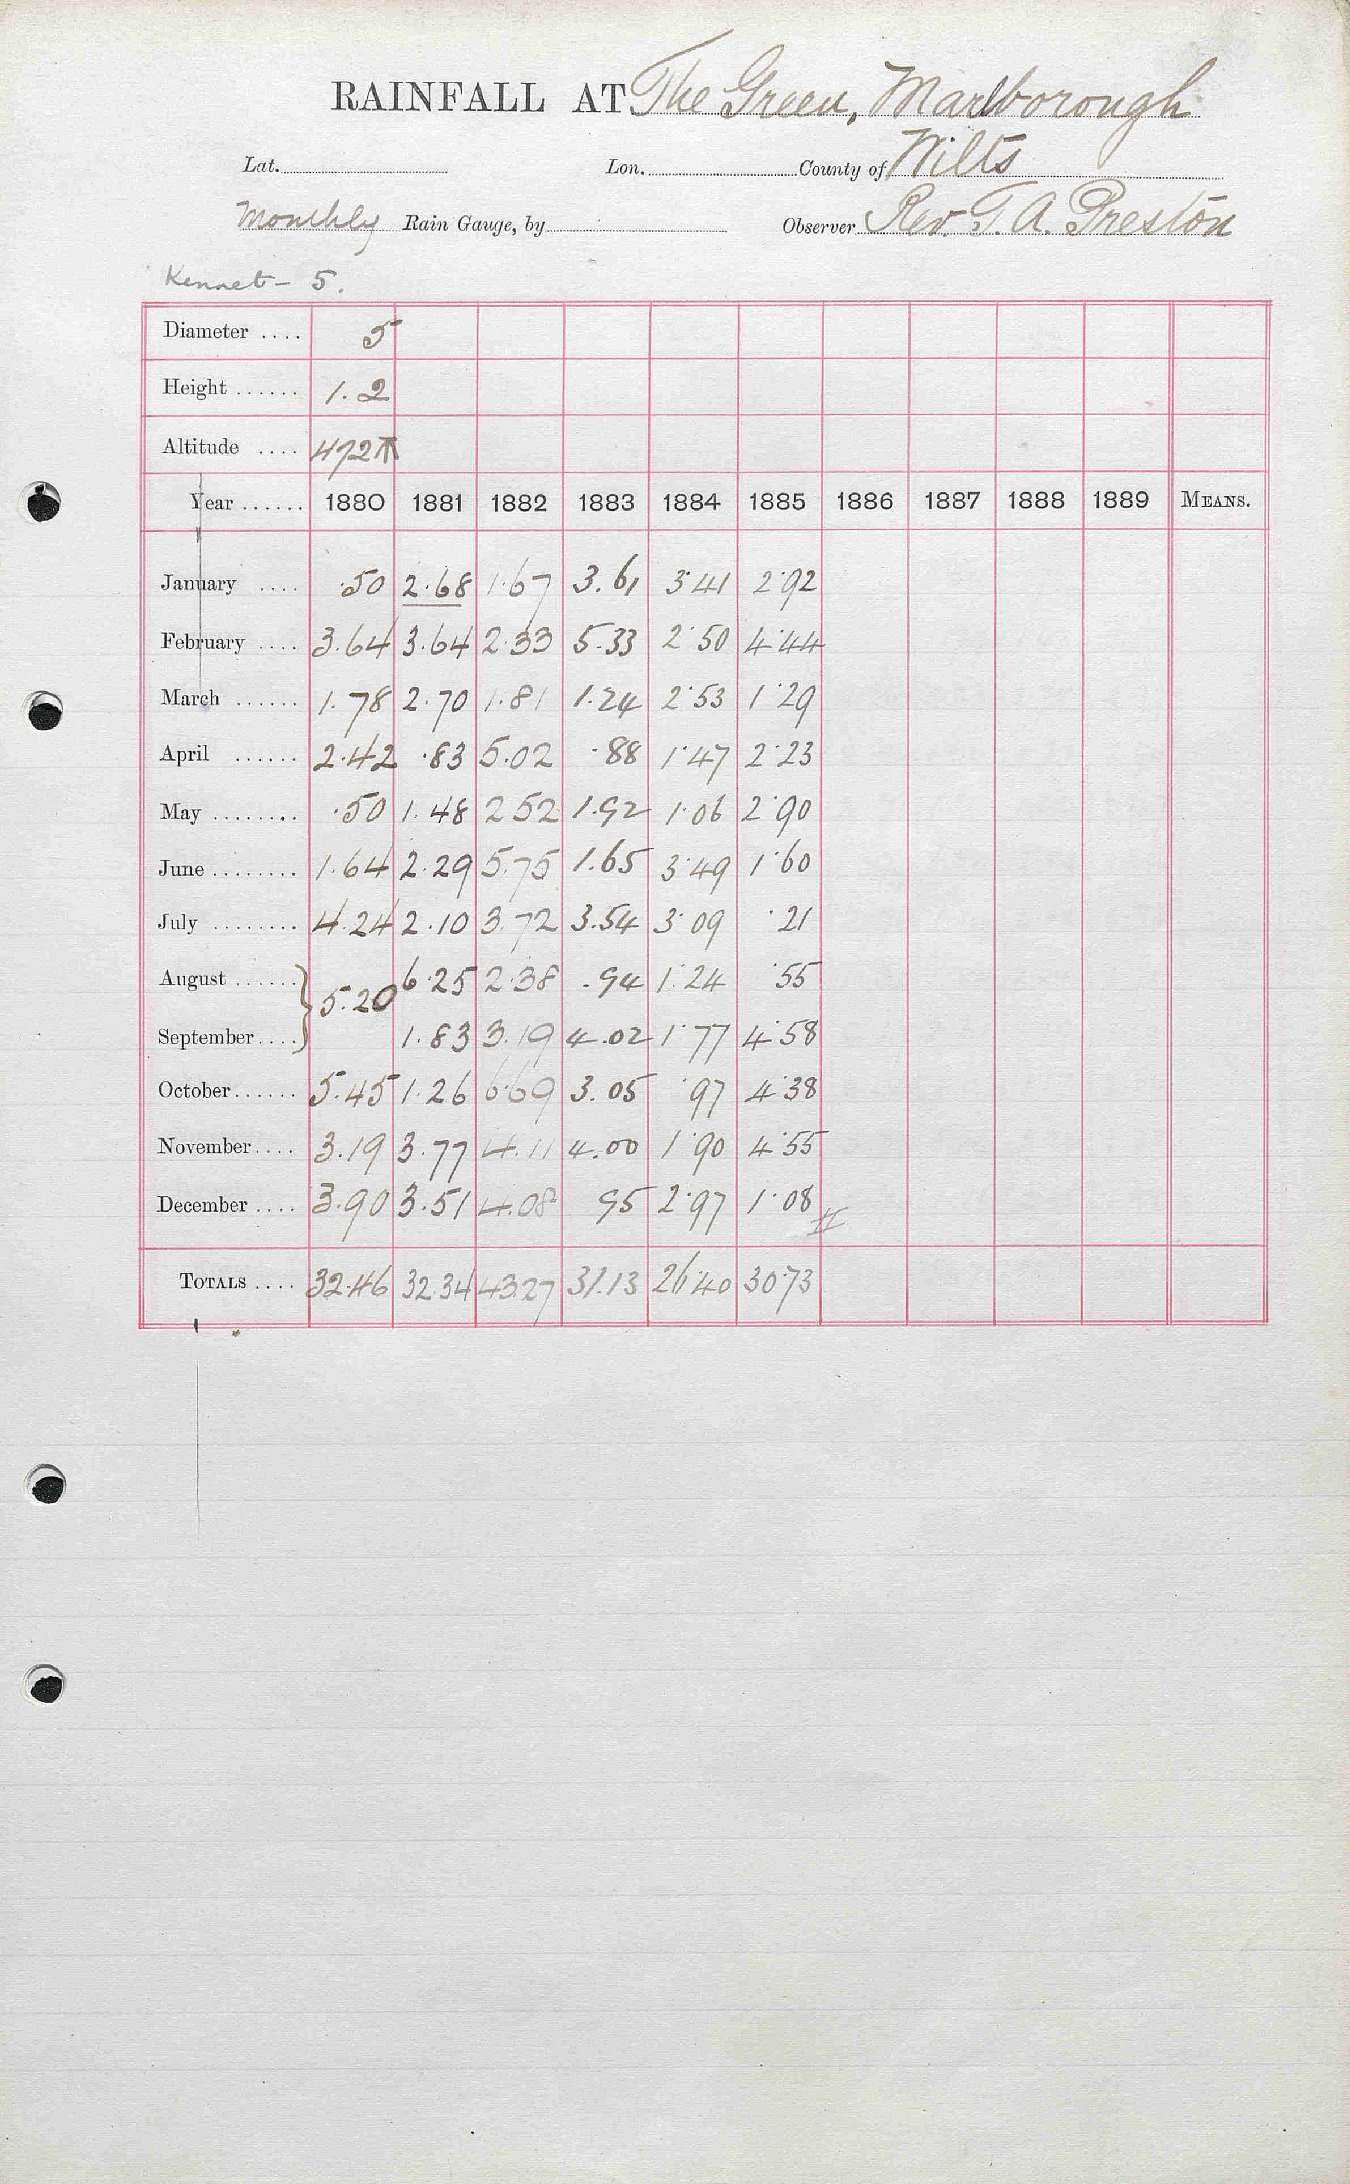 RAINFALL AT The Green, Marlborough
Lat. Lon. County of Wilts
Monthly Rain Gauge, by Observer Rev. T. A. Preston
Kennet - 5.
Diameter .... 5
Height ...... 1.2
Altitude .... 472
Year ...... 1880 1881 1882 1883 1884 1885 1886 1887 1888 1889 MEANS.
January .... .50 2.68 1.67 3.61 3.41 2.92
February .... 3.64 3.64 2.33 5.33 2.50 4.44
March ...... 1.78 2.70 1.81 1.24 2.53 1.29
April ...... 2.42 .83 5.02 .88 1.47 2.23
May ........ .50 1.48 2.52 1.92 1.06 2.90
June ........ 1.64 2.29 5.75 1.65 3.49 1.60
July ........ 4.24 2.10 3.72 3.54 3.09 .21
August ...... } 5.20 6.25 2.38 .94 1.24 .55
September .... 1.83 3.19 4.02 1.77 4.58
October ...... 5.45 1.26 6.69 3.05 .97 4.38
November .... 3.19 3.77 4.11 4.00 1.90 4.55
December .... 3.90 3.51 4.08 95 2.97 1.08
TOTALS .... 32.46 32.34 43.27 31.13 26.40 30.73